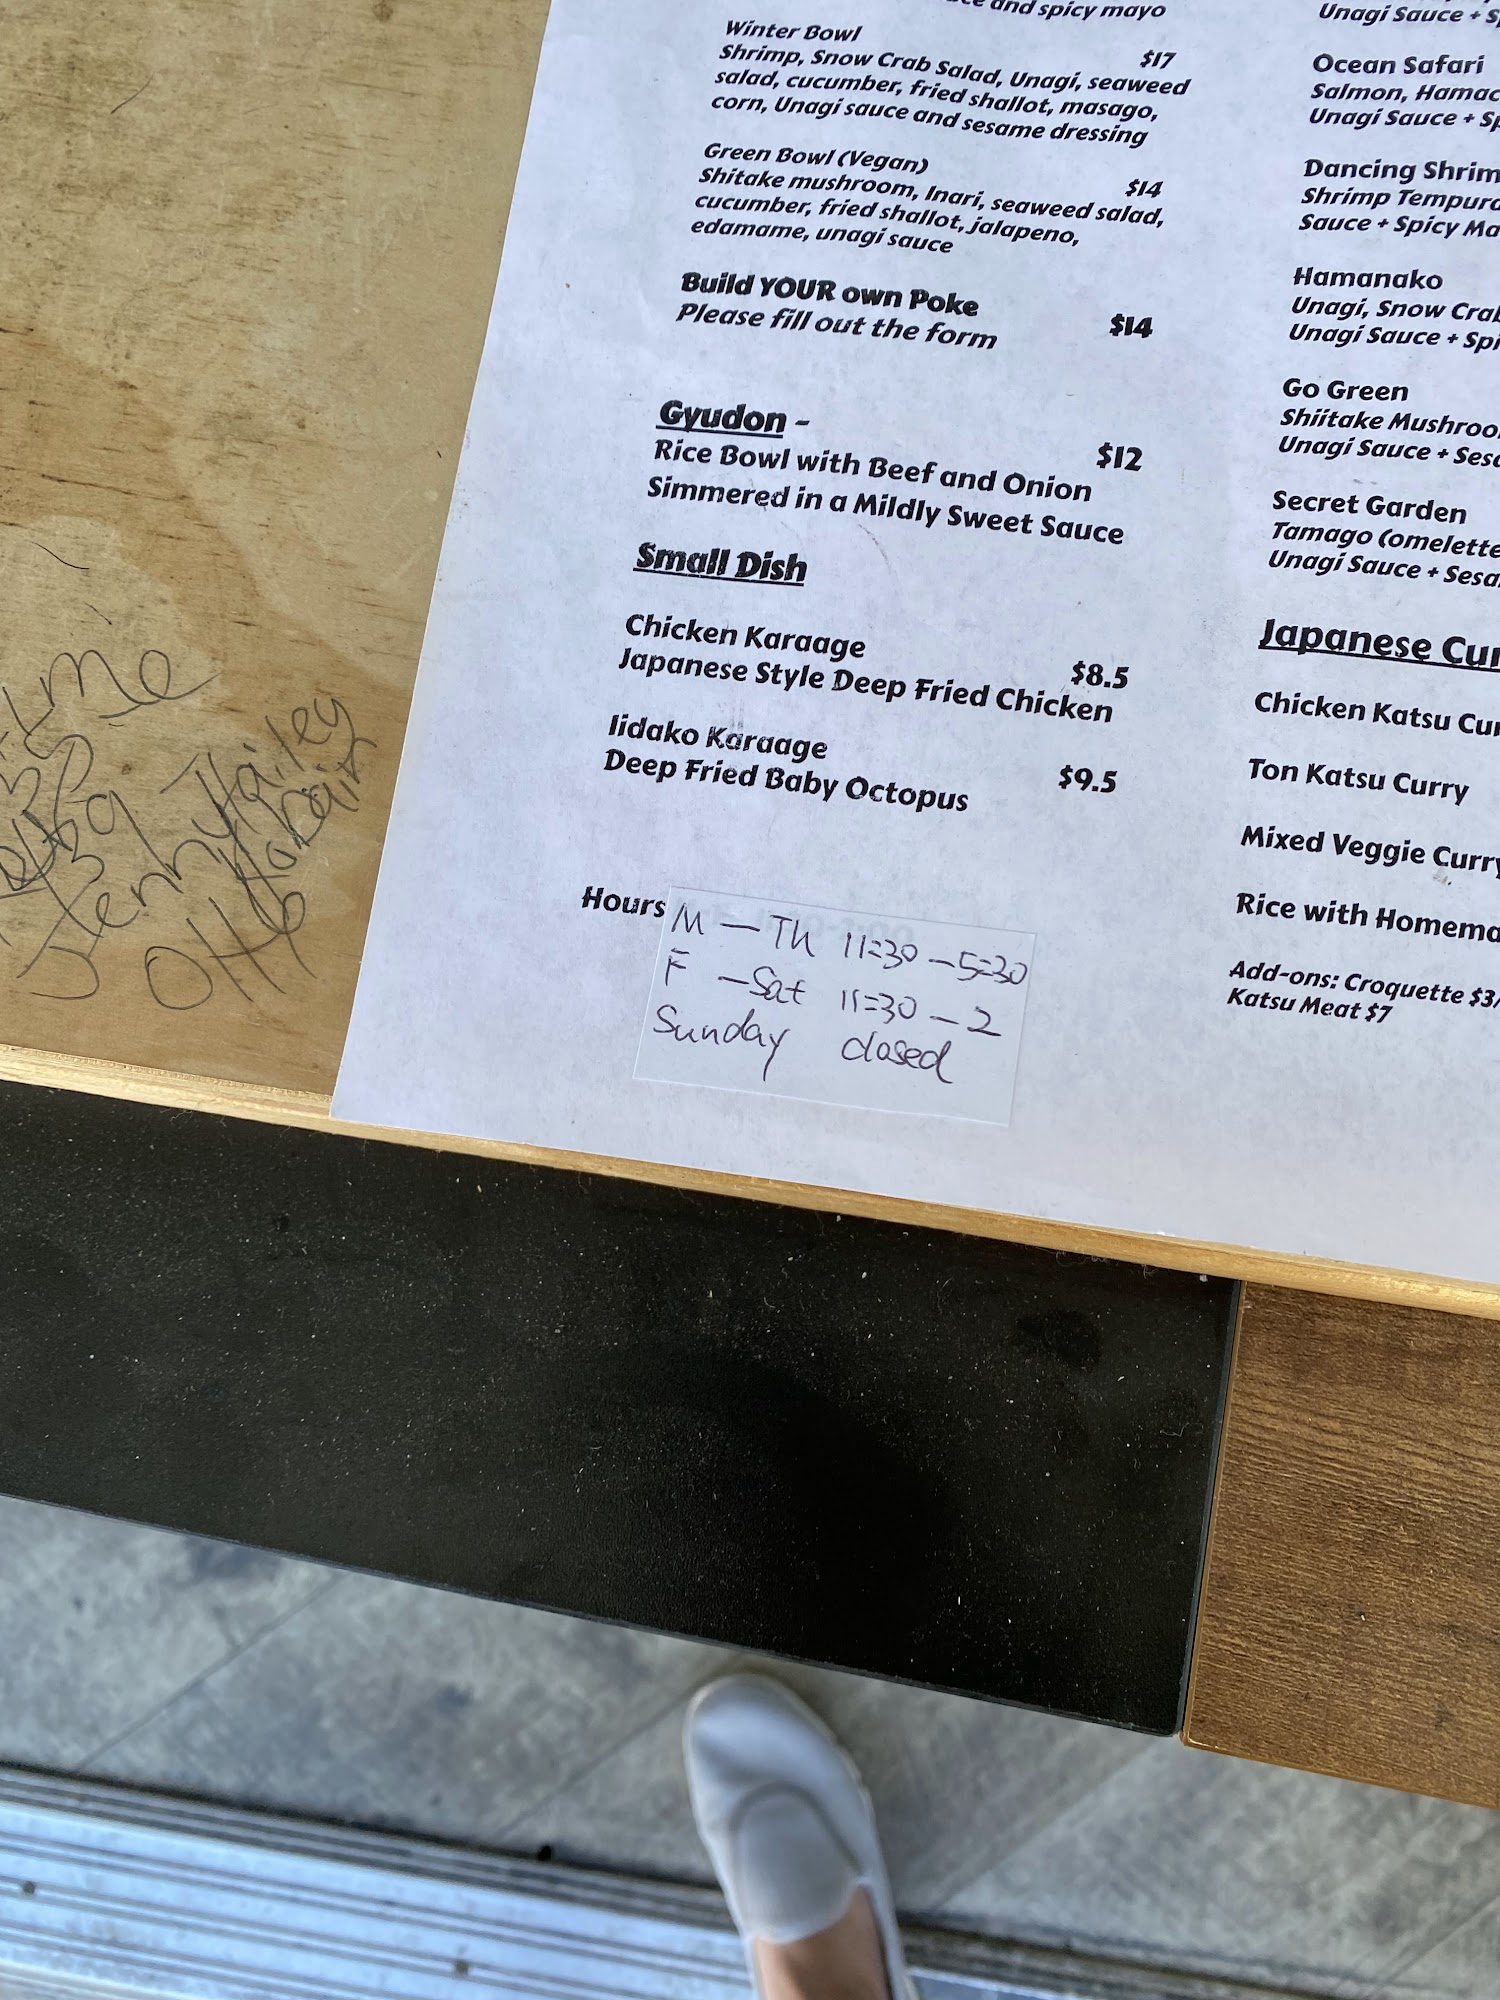 and spicy mayo
Winter Bowl
$17
Shrimp, Snow Crab Salad, Unagi, seaweed
salad, cucumber, fried shallot, masago,
corn, Unagi sauce and sesame dressing
Green Bowl (Vegan)
$14
Shitake mushroom, Inari, seaweed salad,
cucumber, fried shallot, jalapeno,
edamame, unagi sauce
Build YOUR own Poke
$14
Please fill out the form
Gyudon -
$12
Rice Bowl with Beef and Onion
Simmered in a Mildly Sweet Sauce
Small Dish
Chicken Karaage
$8.5
Japanese Style Deep Fried Chicken
Iidako Karaage
$9.5
Deep Fried Baby Octopus
Hours
M - Th 11:30 - 5:30
F - Sat 11:30 - 2
Sunday closed
Unagi Sauce +
Ocean Safari
Salmon,
Unagi Sauce +
Dancing
Shrimp
Sauce + Spicy
Hamanako
Unagi, Snow
Unagi Sauce +
Go Green
Shiitake
Unagi Sauce +
Secret Garden
Tamago (omelette
Unagi Sauce +
Japanese
Chicken Katsu
Ton Katsu Curry
Mixed Veggie Curry
Rice with
Add-ons: Croquette $3/
Katsu Meat $7
Jenny Hailey
Otto